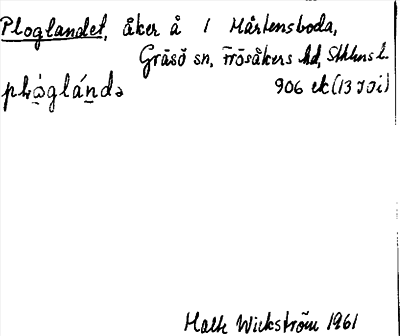 Ploglandet, åker å 1 Mårtensboda,
Gräsö sn, Frösåkers hd, Sthlms l.
906 ek (13 J 0 i)
Wickström 1961